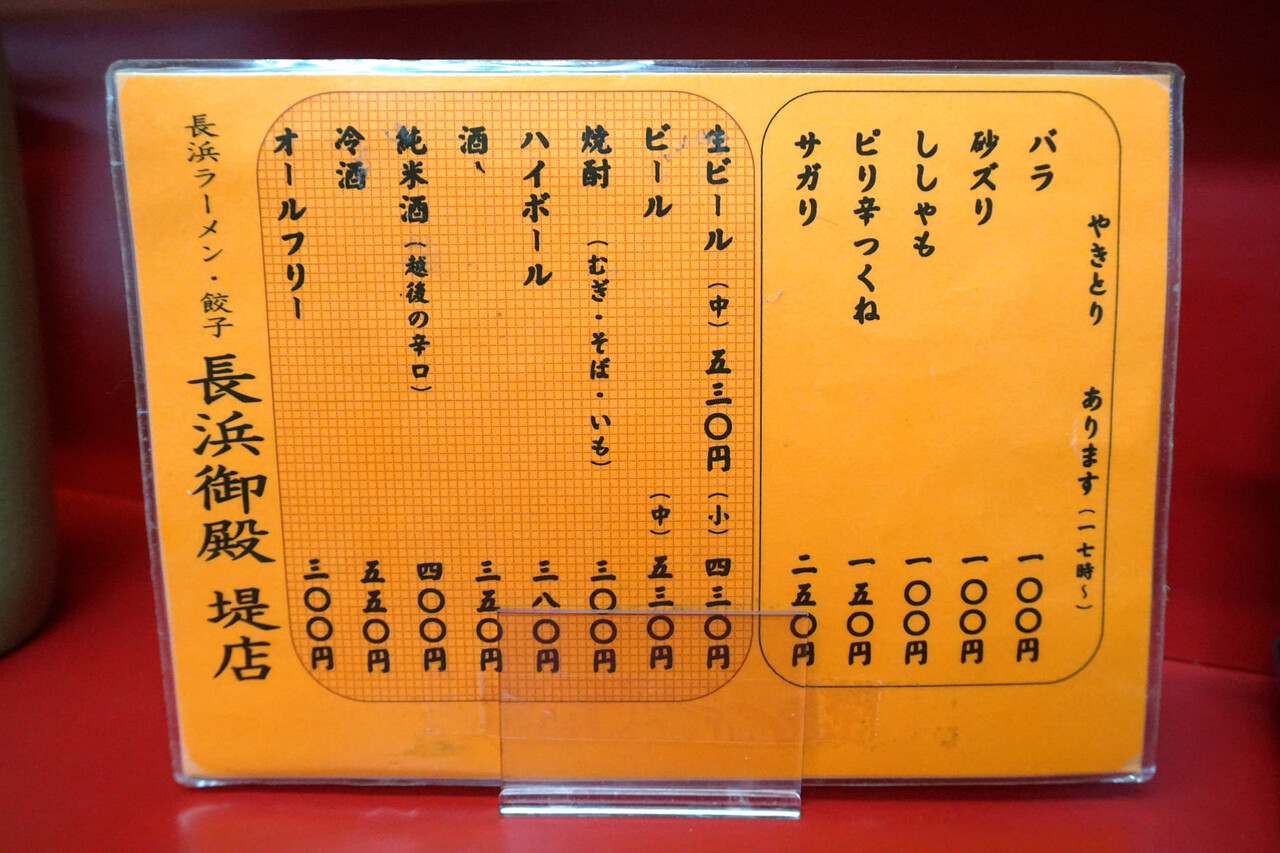 やきとり あります(一七時～)
バラ 一〇〇円
砂ズリ 一〇〇円
ししゃも 一〇〇円
ピリ辛つくね 一五〇円
サガリ 二五〇円
生ビール(中)五三〇円(小)四三〇円
ビール (中)五三〇円
焼酎(むぎ・そば・いも) 三〇〇円
ハイボール 三八〇円
酒、 三五〇円
純米酒(越後の辛口) 四〇〇円
冷酒 五五〇円
オールフリー 三〇〇円
長浜ラーメン・餃子 長浜御殿 堤店